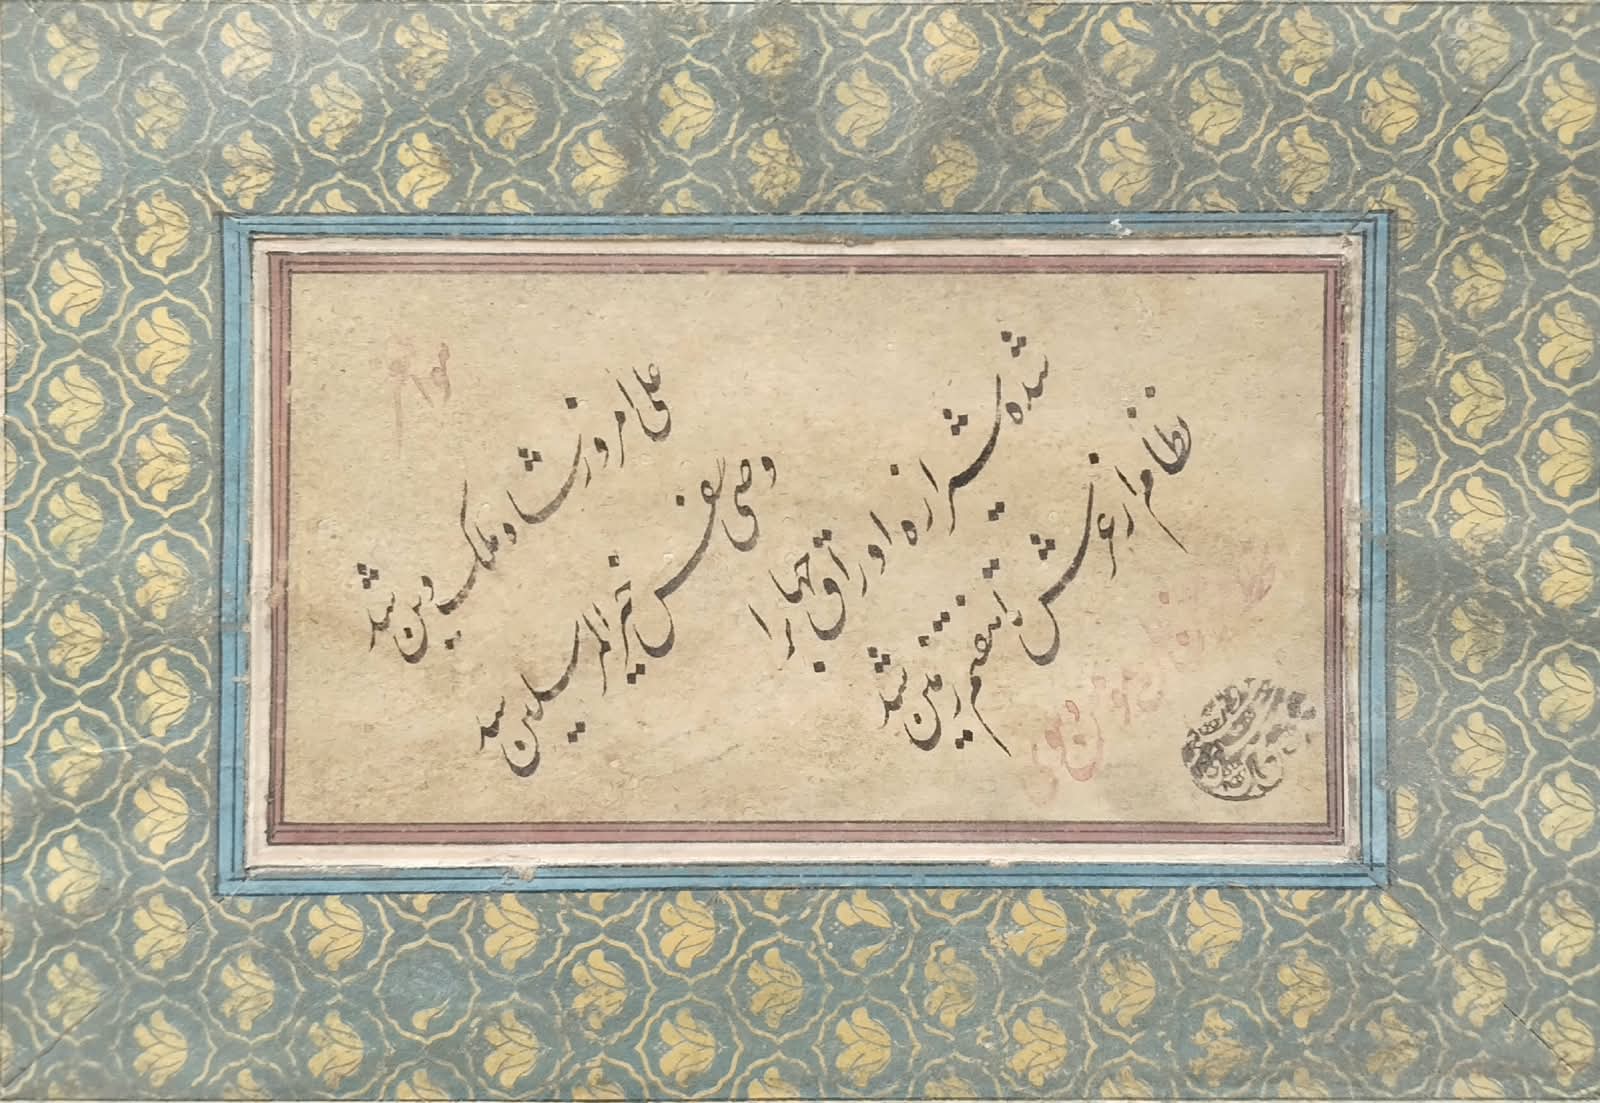 علی امروز شاه ملک دین شد
وصی نفس خیر المرسلین شد
شده شیرازه اوراق جهان را
نظام از عرش تا هفتم زمین شد